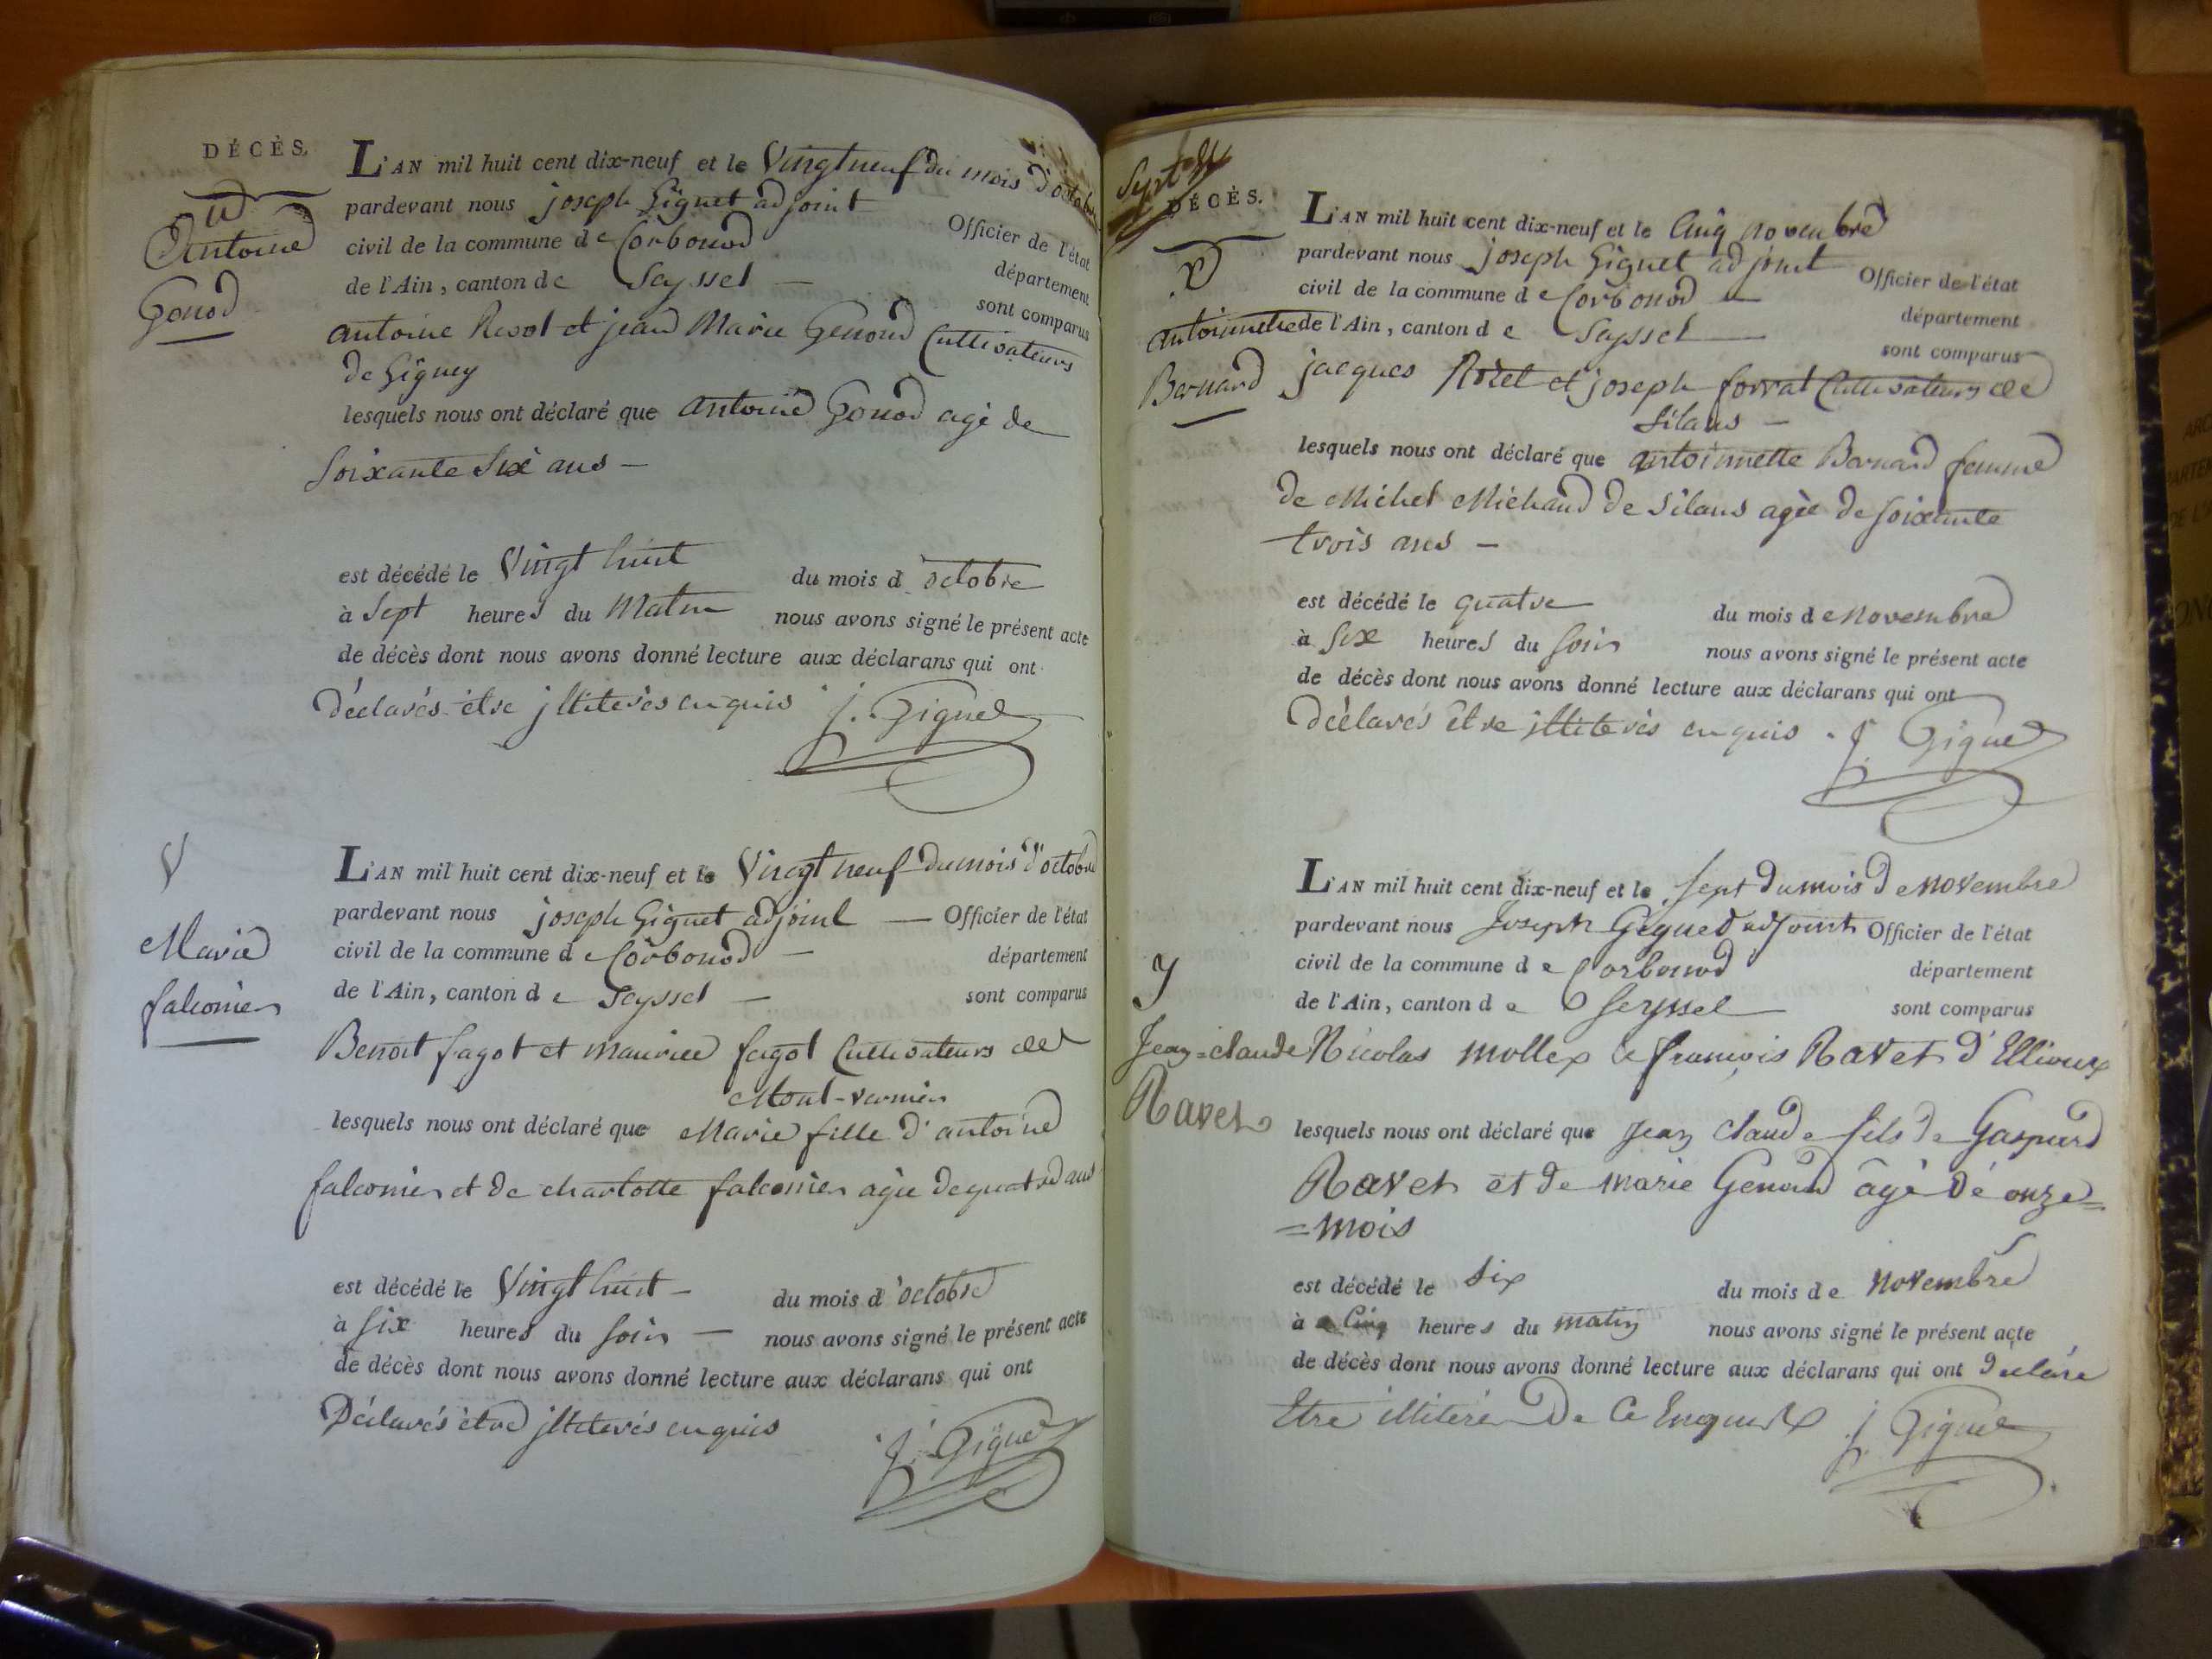 DÉCÈS.
u
Antoine
Gonod
L'AN mil huit cent dix-neuf et le Vingt neuf du mois d'octobre
pardevant nous joseph Giguet adjoint
Officier de l'état
civil de la commune de Corbonod
département
de l'Ain, canton de Seyssel —
sont comparus
antoine Revol et jean Marie Genoud Cultivateurs
de Gigney
lesquels nous ont déclaré que antoine Gonod agé de
Soixante Six ans —
est décédé le Vingt huit du mois d octobre
à Sept heures du Matin nous avons signé le présent acte
de décès dont nous avons donné lecture aux déclarans qui ont
déclarés être jlliterés enquis J. Giguet
V
Marie
falconier
L'AN mil huit cent dix-neuf et le Vingt neuf du mois d'octobre
pardevant nous joseph Giguet adjoint — Officier de l'état
civil de la commune de Corbonod — département
de l'Ain, canton de Seyssel — sont comparus
Benoit fagot et maurice fagot Cultivateurs de
Mont-vernier
lesquels nous ont déclaré que Marie fille d'antoine
falconier et de charlotte falconier agée de quatre ans
est décédé le Vingt huit — du mois d'octobre
à six heures du soir — nous avons signé le présent acte
de décès dont nous avons donné lecture aux déclarans qui ont
Déclarés être jlliterés enquis
J. Giguet
DÉCÈS.
x
antoinnette
Bernard
L'AN mil huit cent dix-neuf et le Cinq novembre
pardevant nous joseph Giguet adjoint Officier de l'état
civil de la commune de Corbonod — département
de l'Ain, canton de Seyssel — sont comparus
jacques Rozet et joseph forrat Cultivateurs de
Silans —
lesquels nous ont déclaré que antoinnette Bernard femme
de Michel Michaud de Silans agée de soixante
trois ans —
est décédé le quatre du mois de Novembre
à six heures du soir nous avons signé le présent acte
de décès dont nous avons donné lecture aux déclarans qui ont
Déclarés être jlliterés enquis. J Giguet
y
Jean=claude
Ravet
L'AN mil huit cent dix-neuf et le sept du mois de Novembre
pardevant nous Joseph Giguet adjoint Officier de l'état
civil de la commune de Corbonod département
de l'Ain, canton de Seyssel sont comparus
Nicolas mollex & françois Ravet d'Ellioux
lesquels nous ont déclaré que Jean claude fils de Gaspard
Ravet et de marie Genoud âgé dé onze=
=mois
est décédé le six du mois de Novembre
à Cinq heures du matin nous avons signé le présent acte
de décès dont nous avons donné lecture aux déclarans qui ont déclaré
Etre illiteré De Ce Enquis J. Giguet